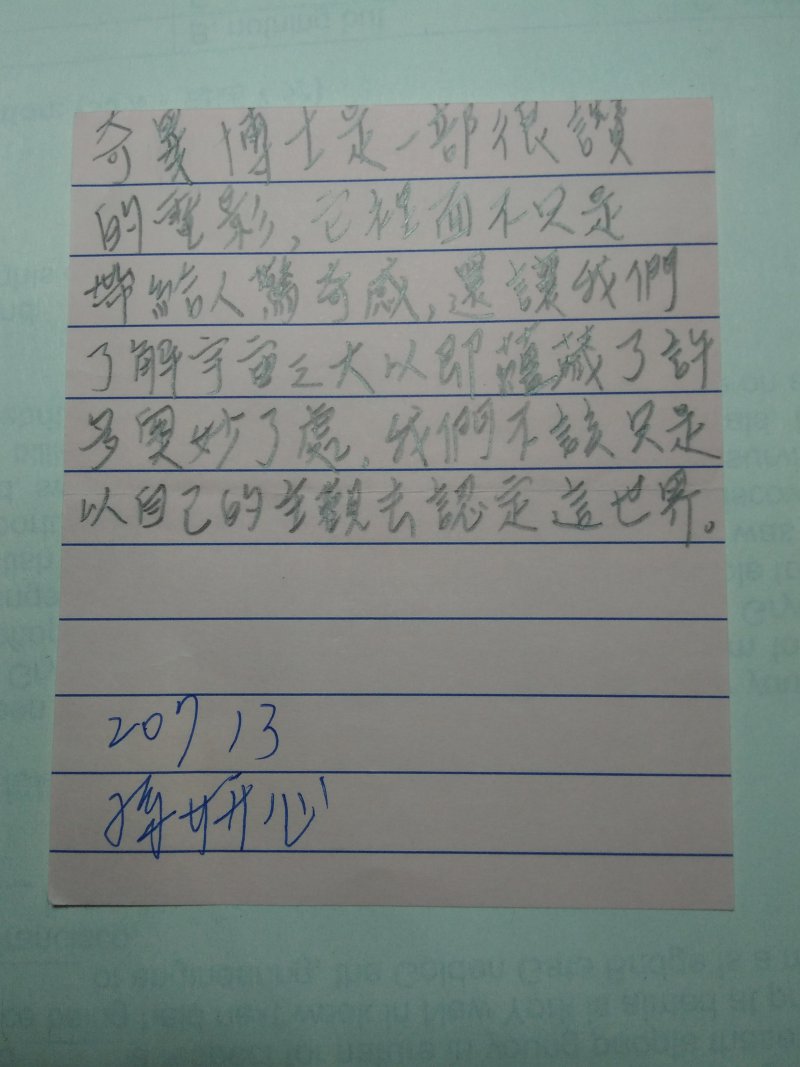 奇異博士是一部很讚
的電影,它裡面不只是
帶給人驚奇感,還讓我們
了解宇宙之大以即蘊藏了許
多奧妙了處,我們不該只是
以自己的主觀去認定這世界。
207 13
妍心